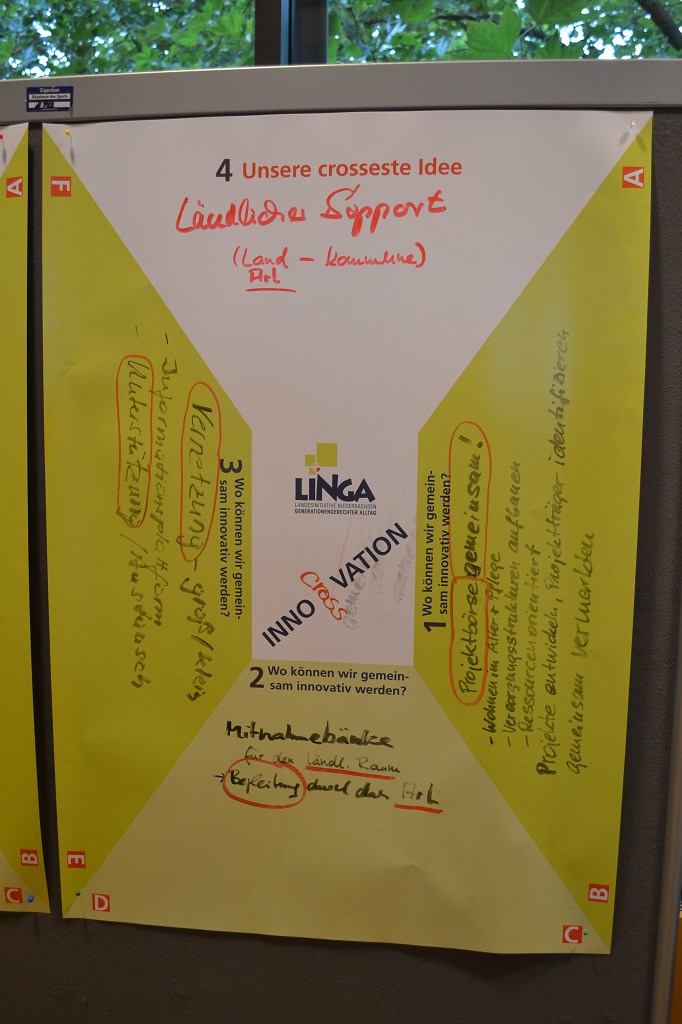 Eigentum
Akademie des Sports
4 Unsere crosseste Idee
Ländlicher Support
(Land – Kommune)
ArL
F
A
A
LINGA
LANDESINITIATIVE NIEDERSACHSEN
GENERATIONENGERECHTER ALLTAG
INNO Cross VATION
1 Wo können wir gemein-
sam innovativ werden?
Projektbörse gemeinsam!
- Wohnen im Alter + Pflege
- Versorgungsstrukturen aufbauen
- Ressourcenorientiert
Projekte entwickeln, Projektträger identifizieren
gemeinsam vermarkten
2 Wo können wir gemein-
sam innovativ werden?
Mitnahmebänke
für den Ländl. Raum
→ Begleitung durch das ArL
3 Wo können wir gemein-
sam innovativ werden?
Vernetzung - groß/klein
- Informationsplattform
- Unterstützung / Austausch
B
E
C
D
B
C